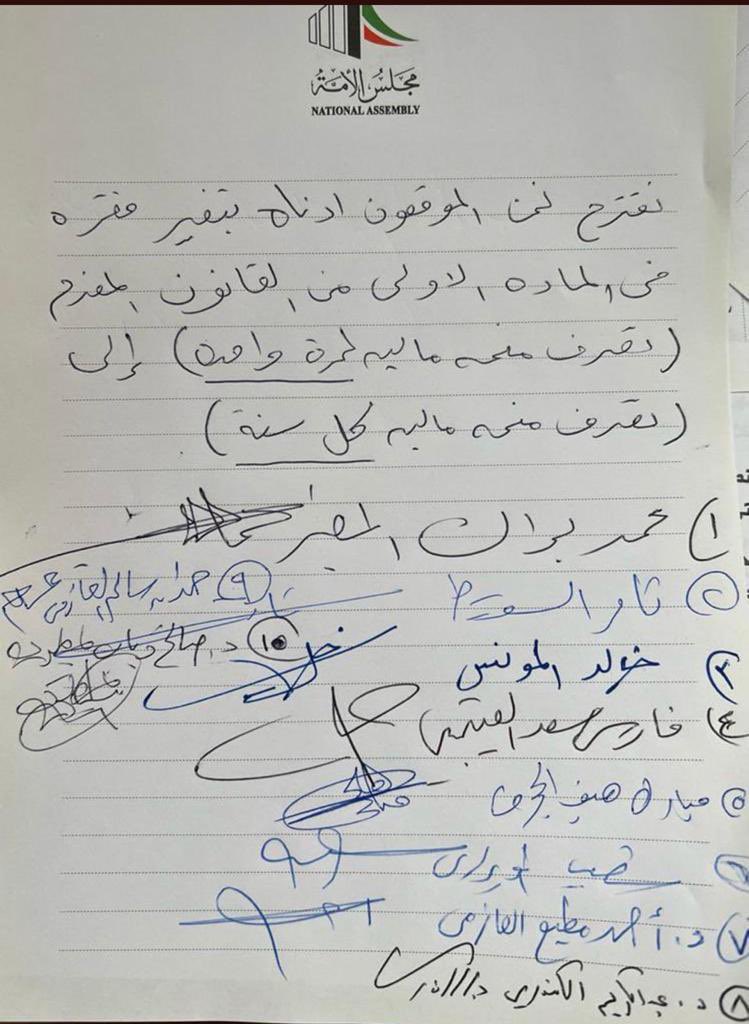 مجلس الأمة
NATIONAL ASSEMBLY
نقترح نحن الموقعون ادناه بتغير فقره
في الماده الاولى من القانون المقدم
(تصرف منحه ماليه لمرة واحده) إلى
(تصرف منحه ماليه كل سنة)
١) محمد براك المطير
ثامر السويط
٣) خالد المونس
٤) فارس سعد العتيبي
٥ مبارك هيف الحجرف
شعيب المويزري
٧ د. أحمد مطيع العازمي
٨ د. عبدالكريم الكندري
٩ حمدان سالم العازمي
١٠ د. صالح ذياب المطيري